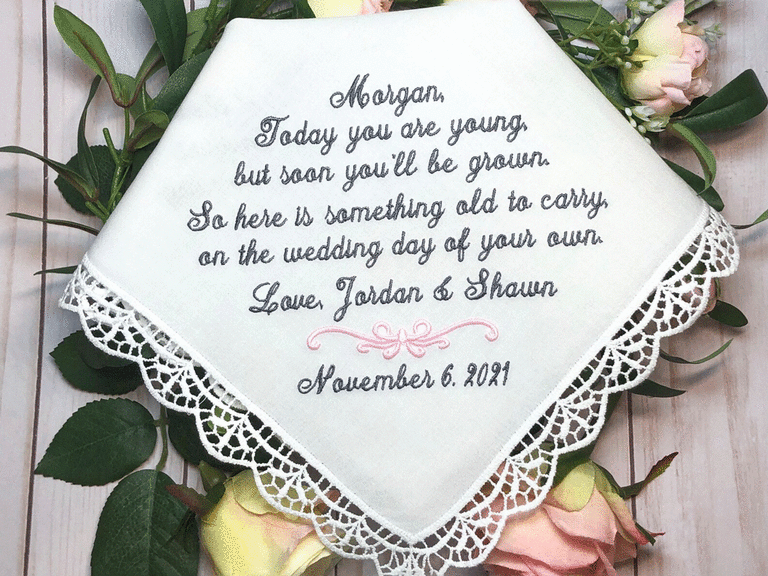 Morgan,
Today you are young,
but soon you'll be grown.
So here is something old to carry,
on the wedding day of your own.
Love, Jordan & Shawn
November 6, 2021